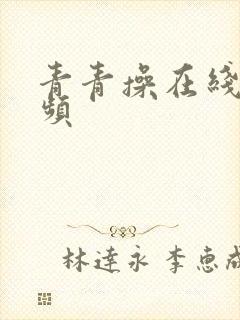 青青操在綫
頻
林達永 李惠成